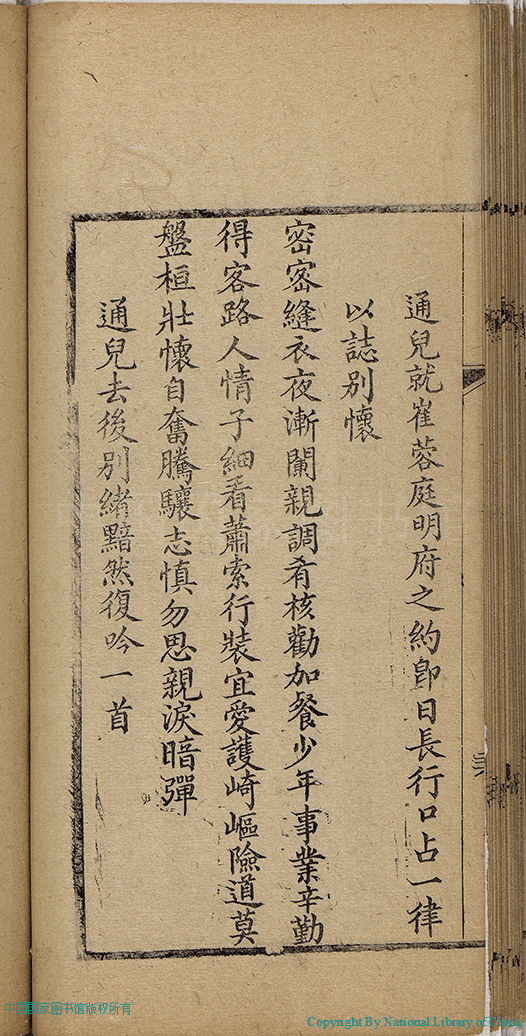 通兒就崔蓉庭明府之約卽日長行口占一律
以誌別懷
密密縫衣夜漸闌親調肴核勸加餐少年事業辛勤
得客路人情子細看蕭索行裝宜愛護崎嶇險道莫
盤桓壯懷自奮騰驤志慎勿思親淚暗彈
通兒去後別緒黯然復吟一首
中国国家图书馆版权所有
Copyright By National Library of China